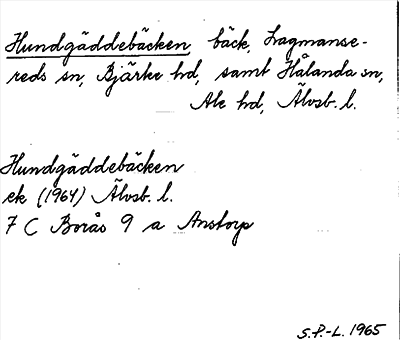 Hundgäddebäcken, bäck, Lagmanse-
reds sn, Bjärke hd, samt Hålanda sn,
Ale hd, Älvsb. l.
Hundgäddebäcken
ek (1964) Älvsb. l.
7 C Borås 9 a Anstorp
S.P.-L. 1965